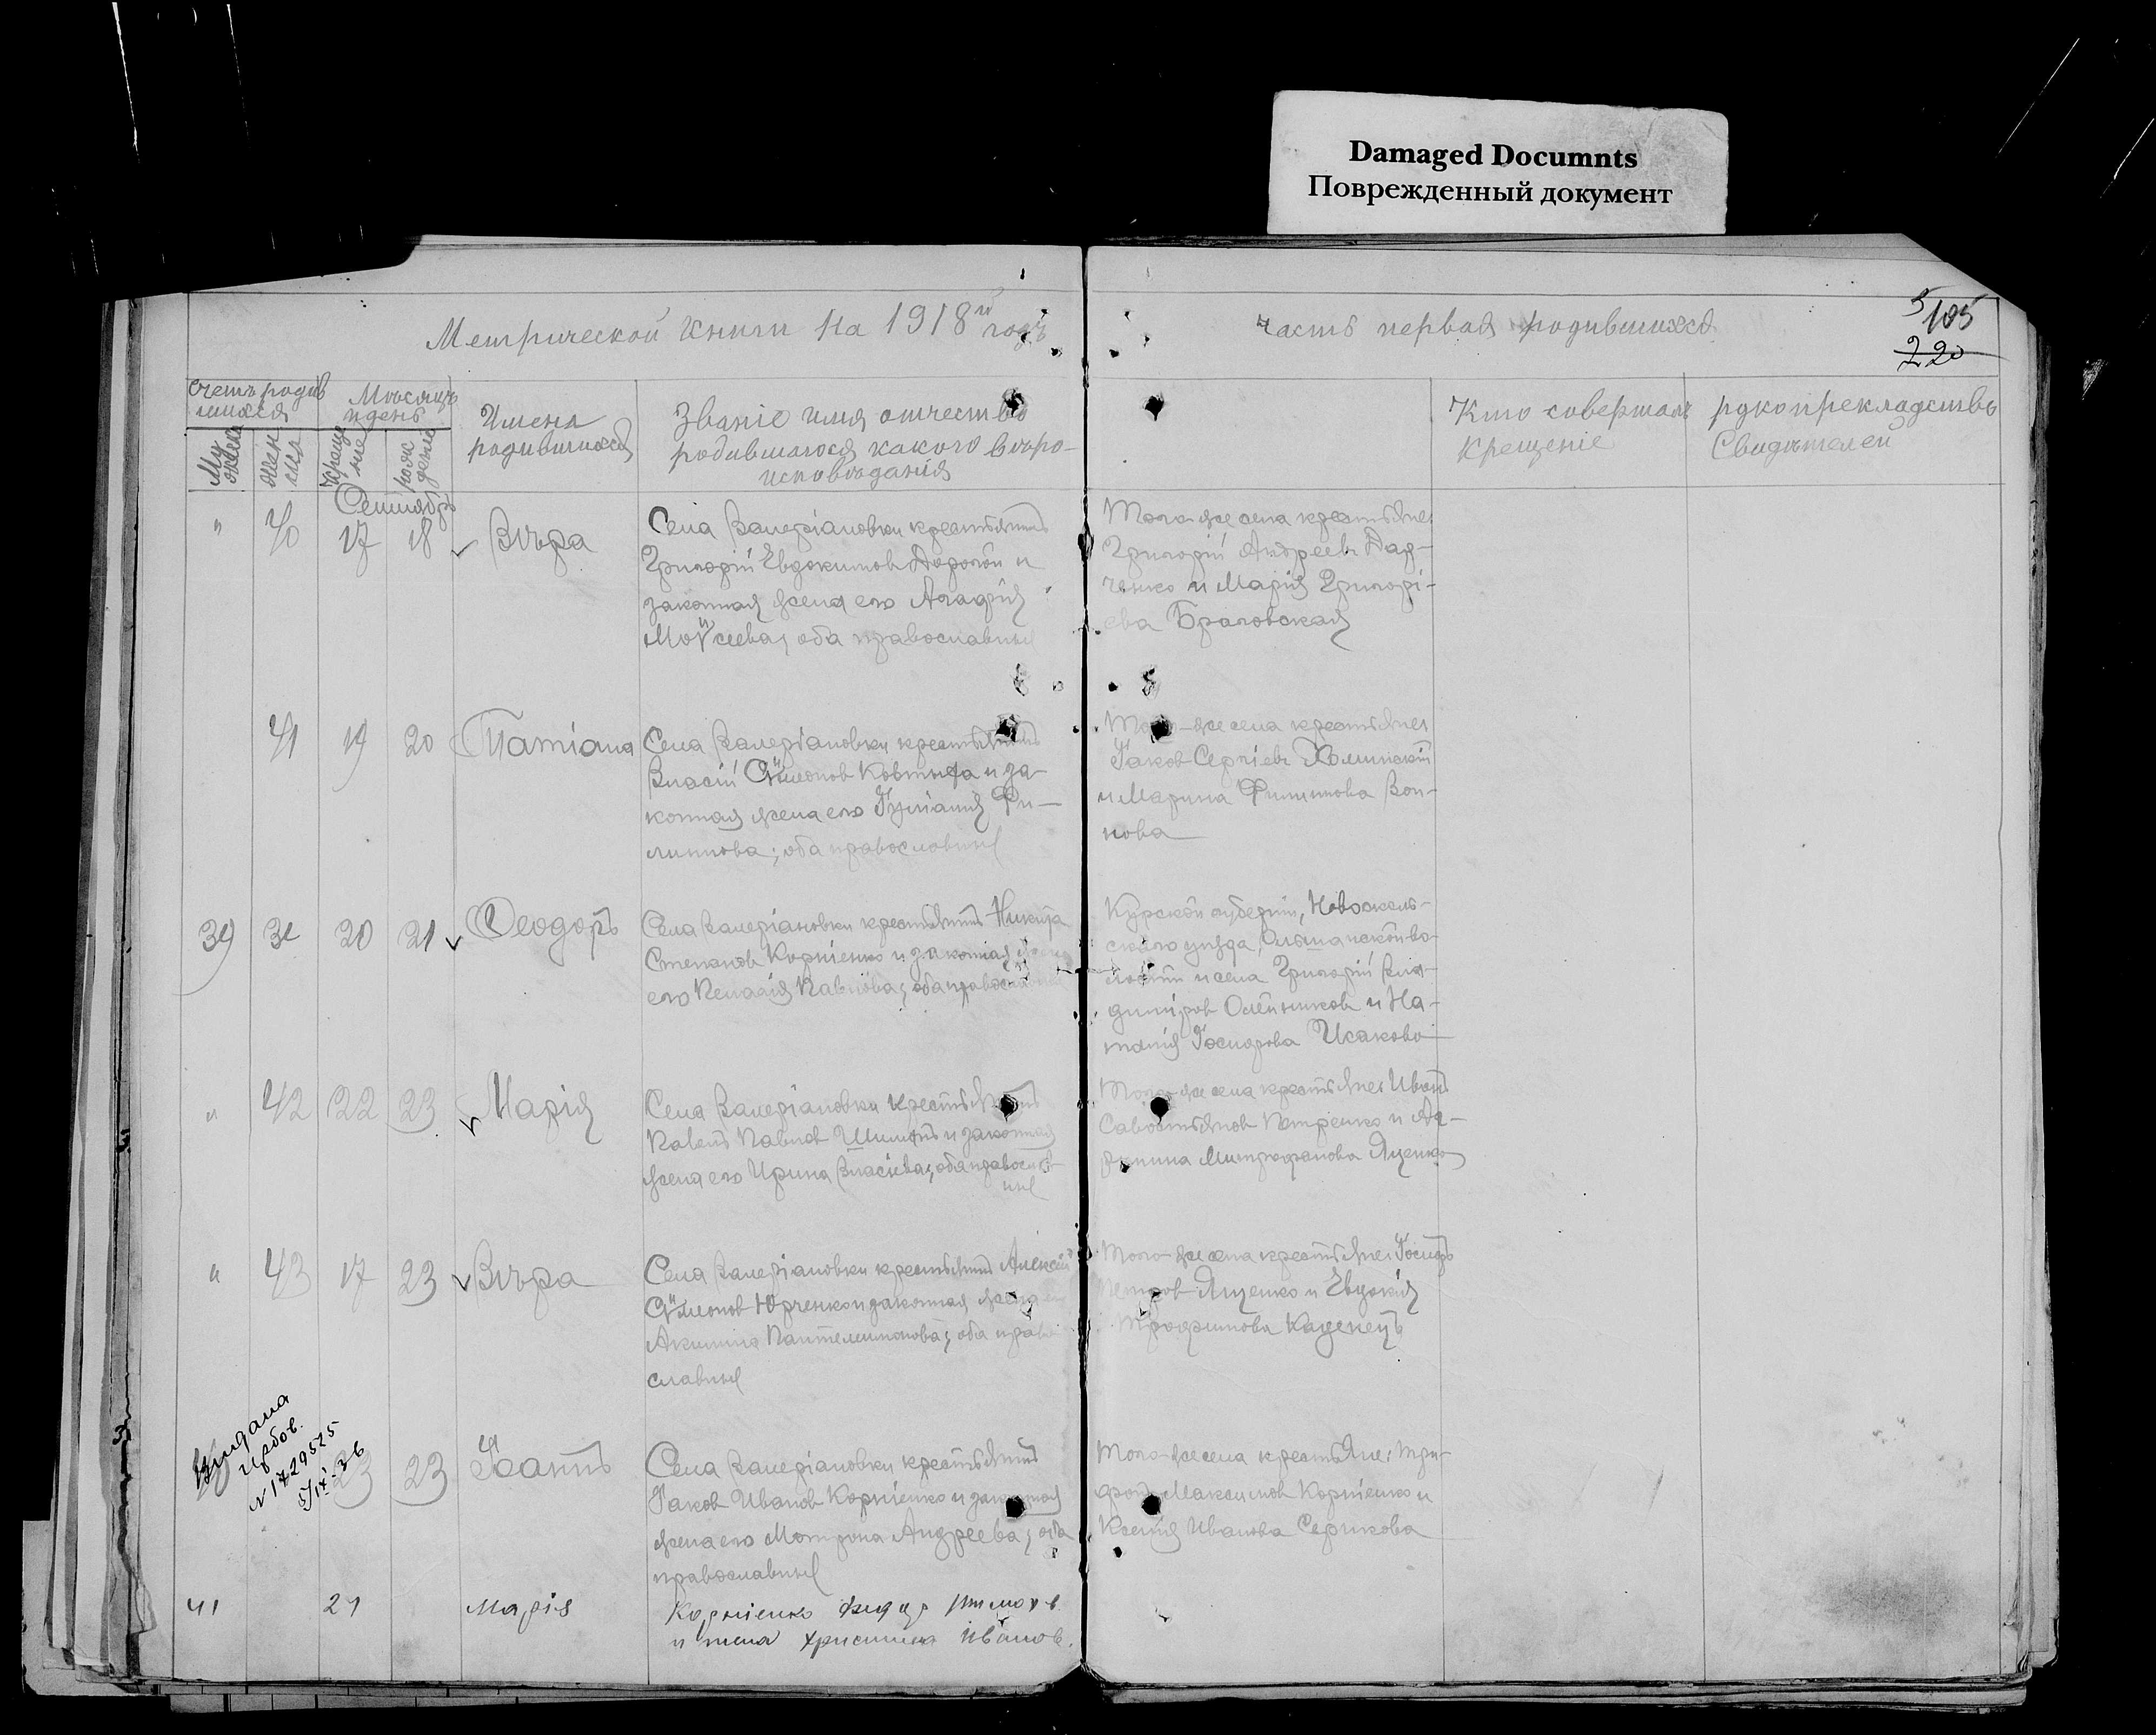 Damaged Documnts
Поврежденный документ
Метрической книги на 1918й годъ
часть первая родившихся
5
105
220
Счетъ родив
шихся
Мужеска
Женска
Мѣсяцъ
и день
рожденiе
Имена
родившихся
Званiе имя отчество
родившагося какого вѣро-
исповѣданiя
Кто совершалъ
крещенiе
рукоприкладство
Свидѣтелей
Сентябрь
" 40 17 18 Вѣра
Села Валерiановки крестьянинъ
Григорiй Евдокимов и
законная жена его Агафiя
Моѵсеева, оба православные
Того-же села крестьяне:
Григорiй Андреевъ Дад-
ченко и Марiя Григорi-
ева Браговская
41 19 20 Татiана
Села Валерiановки крестьянинъ
Власiй Сѵмеонов Ковтыфа и за-
конная жена его Iулiанiя Фи-
липпова; оба православные
Того-же села крестьяне
Iаков Сергiевъ
и Марина Филиппова Вол-
кова
39 20 21 Ѳеодоръ
Села Валерiановки крестьянинъ Никита
Степанов Корнiенко и законная жена
его Пелагiя Павлова; оба православные
Курской губернiи, Новооскель-
скаго уѣзда, Ольшанской во-
лости и села Григорiй Вла-
димiров Олейников и На-
талiя Iосифова Исакова
" 42 22 23 Марiя
Села Валерiановки крестьянинъ
Павелъ Павлов и законная
жена его Ирина Власiева; оба православ-
ные
Того-же села крестьяне: Иванъ
Савостьянов Петренко и Да-
Митрофанова Яценко
" 43 17 23 Вѣра
Села Валерiановки крестьянинъ Алексѣй
Сѵмеонов Юрченко и законная жена его
Акилина Пантелимонова; оба право-
славные
Того-же села крестьяне: Iосифъ
Петров Яценко и Евдокiя
Трофимова Каденецъ
Видана
N 1729525
23 23 Iоаннъ
Села Валерiановки крестьянинъ
Iаков Иванов Корнiенко и законная
жена его Мотрона Андреева; оба
православные
Того-же села крестьяне: Три-
фонъ Максимов Корнiенко и
Ксенiя Иванова Серикова
41 21 Марiя
Корнiенко
и жена христина Иванов.